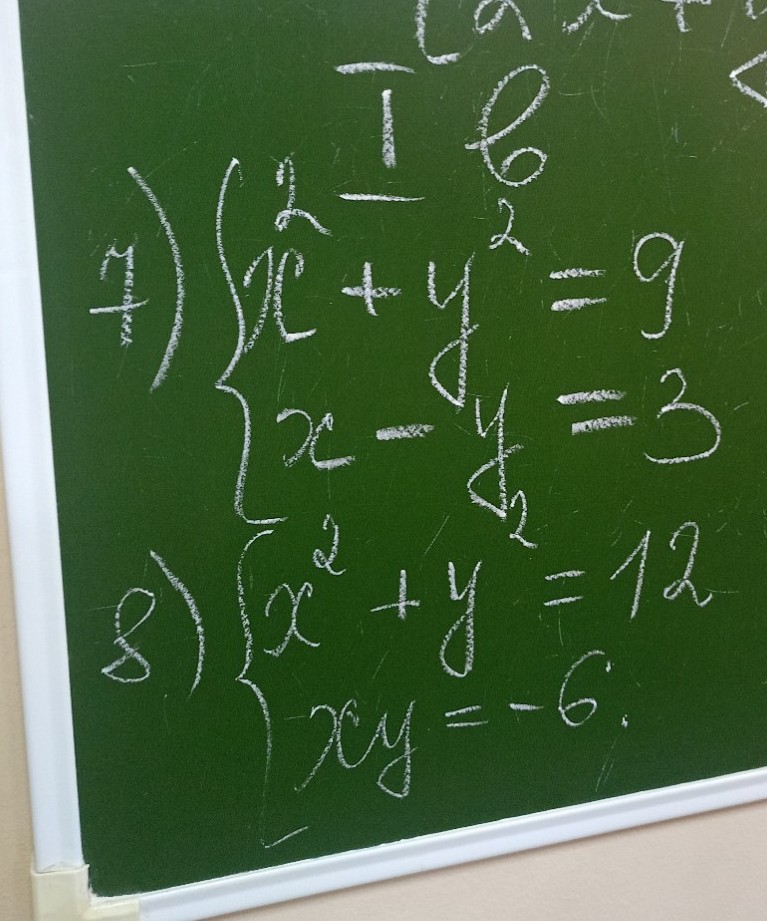 I в
7) { x² + y² = 9
x - y = 3
8) { x² + y² = 12
xy = -6.